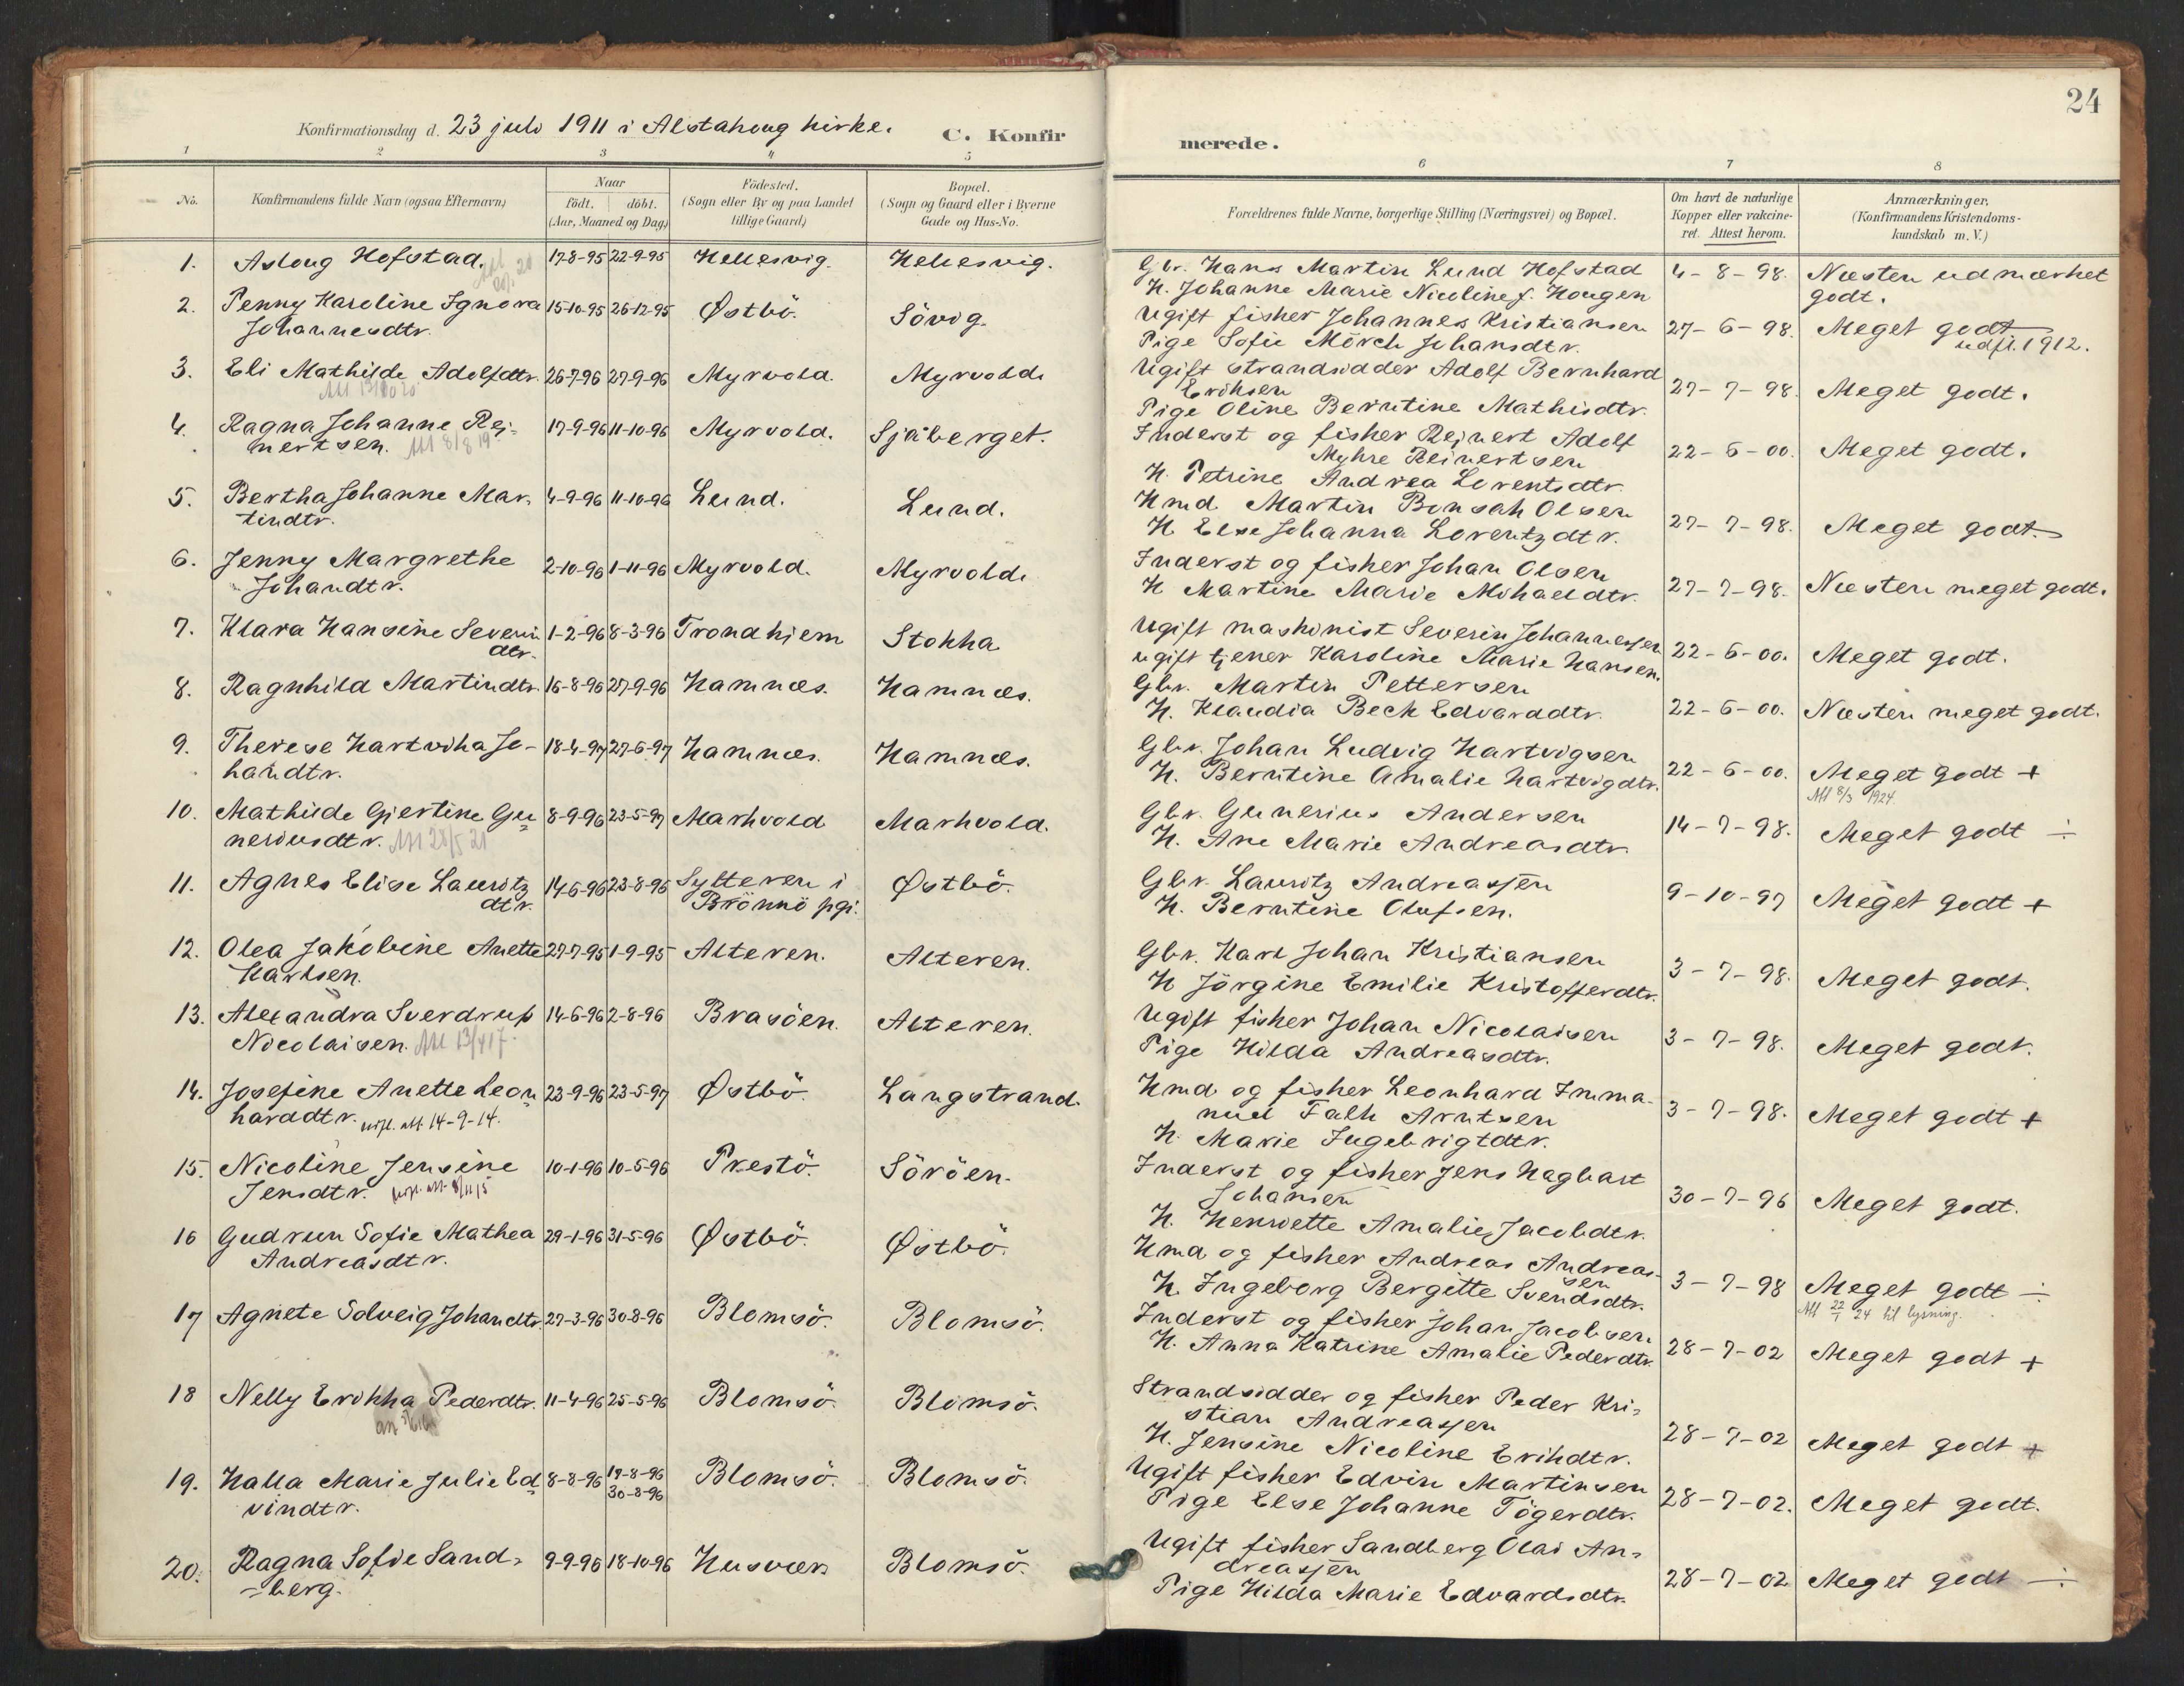 24
Konfirmationsdag d. 23 juli 1911 i Alstahoug kirke.
C. Konfirmerede.
1 2 3 4 5 6 7 8
No.
Konfirmandens fulde Navn (ogsaa Efternavn)
Naar
födt. döbt.
(Aar, Maaned og Dag)
Födested.
(Sogn eller By og paa Landet
tillige Gaard)
Bopæl.
(Sogn og Gaard eller i Byerne
Gade og Hus-No.
Forældrenes fulde Navne, borgerlige Stilling (Næringsvei) og Bopæl.
Om havt de naturlige
Kopper eller vakcine-
ret. Attest herom.
Anmærkninger.
(Konfirmandens Kristendoms-
kundskab m. V.)
1. Asloug Hofstad. 17-8-95 22-9-95 Hellesvig. Hellesvig. Gbr. Hans Martin Lund Hofstad 4-8-98. Næsten udmærket
H. Johanne Marie Nicoline f. Hougen godt.
2. Penny Karoline Ignora 15-10-95 26-12-95 Østbö. Sövig. Ugift fisker Johannes Kristiansen 27-6-98. Meget godt
Johannesdtr. Pige Sofie Mörch Johansdtr. udfl. 1912.
3. Eli Mathilde Adolfdtr. 26-7-96 27-9-96 Myrvold. Myrvold. Ugift strandsidder Adolf Bernhard
Eriksen 27-7-98. Meget godt.
Pige Oline Berntine Mathisdtr.
4. Ragna Johanne Rei- 17-9-96 11-10-96 Myrvold. Sjåberget. Inderst og fisker Reinert Adolf
nertsen. Att 8/8 19 Myhre Reinertsen 22-6-00. Meget godt.
H. Petrine Andrea Lorentsdtr.
5. Bertha Johanne Mar- 4-9-96 11-10-96 Lund. Lund. Hmd. Martin Bonsak Olsen 27-7-98. Meget godt.
tindtr. H. Else Johanna Lorentzdtr.
6. Jenny Margrethe 2-10-96 1-11-96 Myrvold. Myrvold. Inderst og fisker Johan Olsen
Johandtr. H. Martine Marie Mikaeldtr. 27-7-98. Næsten meget godt.
7. Klara Hansine Severin 1-2-96 8-3-96 Trondhjem Stokka Ugift maskinist Severin Johannessen
dtr. ugift tjener Karoline Marie Hansen. 22-6-00. Meget godt.
8. Ragnhild Martindtr. 16-8-96 27-9-96 Hamnæs. Hamnæs. Gbr. Martin Pettersen
H. Klaudia Beck Edvarddtr. 22-6-00. Næsten meget godt.
9. Therese Hartvika Jo- 18-4-97 27-6-97 Hamnæs. Hamnæs. Gbr. Johan Ludvig Hartvigsen
handtr. H. Berntine Amalie Hartvigdtr. 22-6-00. Meget godt +
Att 8/3 1924.
10. Mathilde Gjertine Gu- 8-9-96 23-5-97 Markvold Markvold. Gbr. Gunerius Andersen 14-7-98. Meget godt ÷
neriusdtr. Att 28/5 21 H. Ane Marie Andreasdtr.
11. Agnes Elise Lauritz 14-6-96 23-8-96 Sylteren i Østbö. Gbr. Lauritz Andreassen 9-10-97 Meget godt +
dtr. Brönnö pgj. H. Berntine Olufsen.
12. Olea Jakobine Anette 27-7-95 1-9-95 Alteren. Alteren. Gbr. Karl Johan Kristiansen 3-7-98. Meget godt.
Karlsen. H. Jörgine Emilie Kristofferdtr.
13. Alexandra Sverdrup 14-6-96 2-8-96 Brasöen. Alteren. Ugift fisker Johan Nicolaisen 3-7-98. Meget godt.
Nicolaisen. Att 13/4 17. Pige Hilda Andreasdtr.
14. Josefine Anette Leon- 23-9-96 23-5-97 Østbö. Langstrand. Hmd og fisker Leonhard Imma-
harddtr. udfl. att. 14-9-14. nuel Falk Arntsen 3-7-98. Meget godt +
H. Marie Ingebrigtdtr.
15. Nicoline Jensine 10-1-96 10-5-96 Prestö. Söröen. Inderst og fisker Jens Hagbart
Jensdtr. Johansen 30-7-96 Meget godt.
H. Henriette Amalie Jacobdtr.
16 Gudrun Sofie Mathea 29-1-96 31-5-96 Østbö. Østbö. Hmd og fisker Andreas Andreas-
Andreasdtr. sen 3-7-98 Meget godt ÷
H. Ingeborg Bergitte Svendsdtr. Att 22/1 24 til lysning.
17 Agnete Solveig Johandtr. 27-3-96 30-8-96 Blomsö. Blomsö. Inderst og fisker Johan Jacobsen
H. Anna Katrine Amalie Pederdtr. 28-7-02 Meget godt +
18 Nelly Erikka Pederdtr. 11-4-96 25-5-96 Blomsö. Blomsö. Strandsidder og fisker Peder Kri-
stian Andreassen
H. Jensine Nicoline Erikdtr. 28-7-02 Meget godt +
19. Halla Marie Julie Ed- 8-8-96 19-8-96 Blomsö. Blomsö. Ugift fisker Edvin Martinsen
vindtr. 30-8-96 Pige Else Johanne Tögerdtr. 28-7-02. Meget godt.
20. Ragna Sofie Sand- 9-9-96 18-10-96 Husvær Blomsö. Ugift fisker Sandberg Olai An-
-berg. dreassen
Pige Hilda Marie Edvardsdtr. 28-7-02 Meget godt ÷